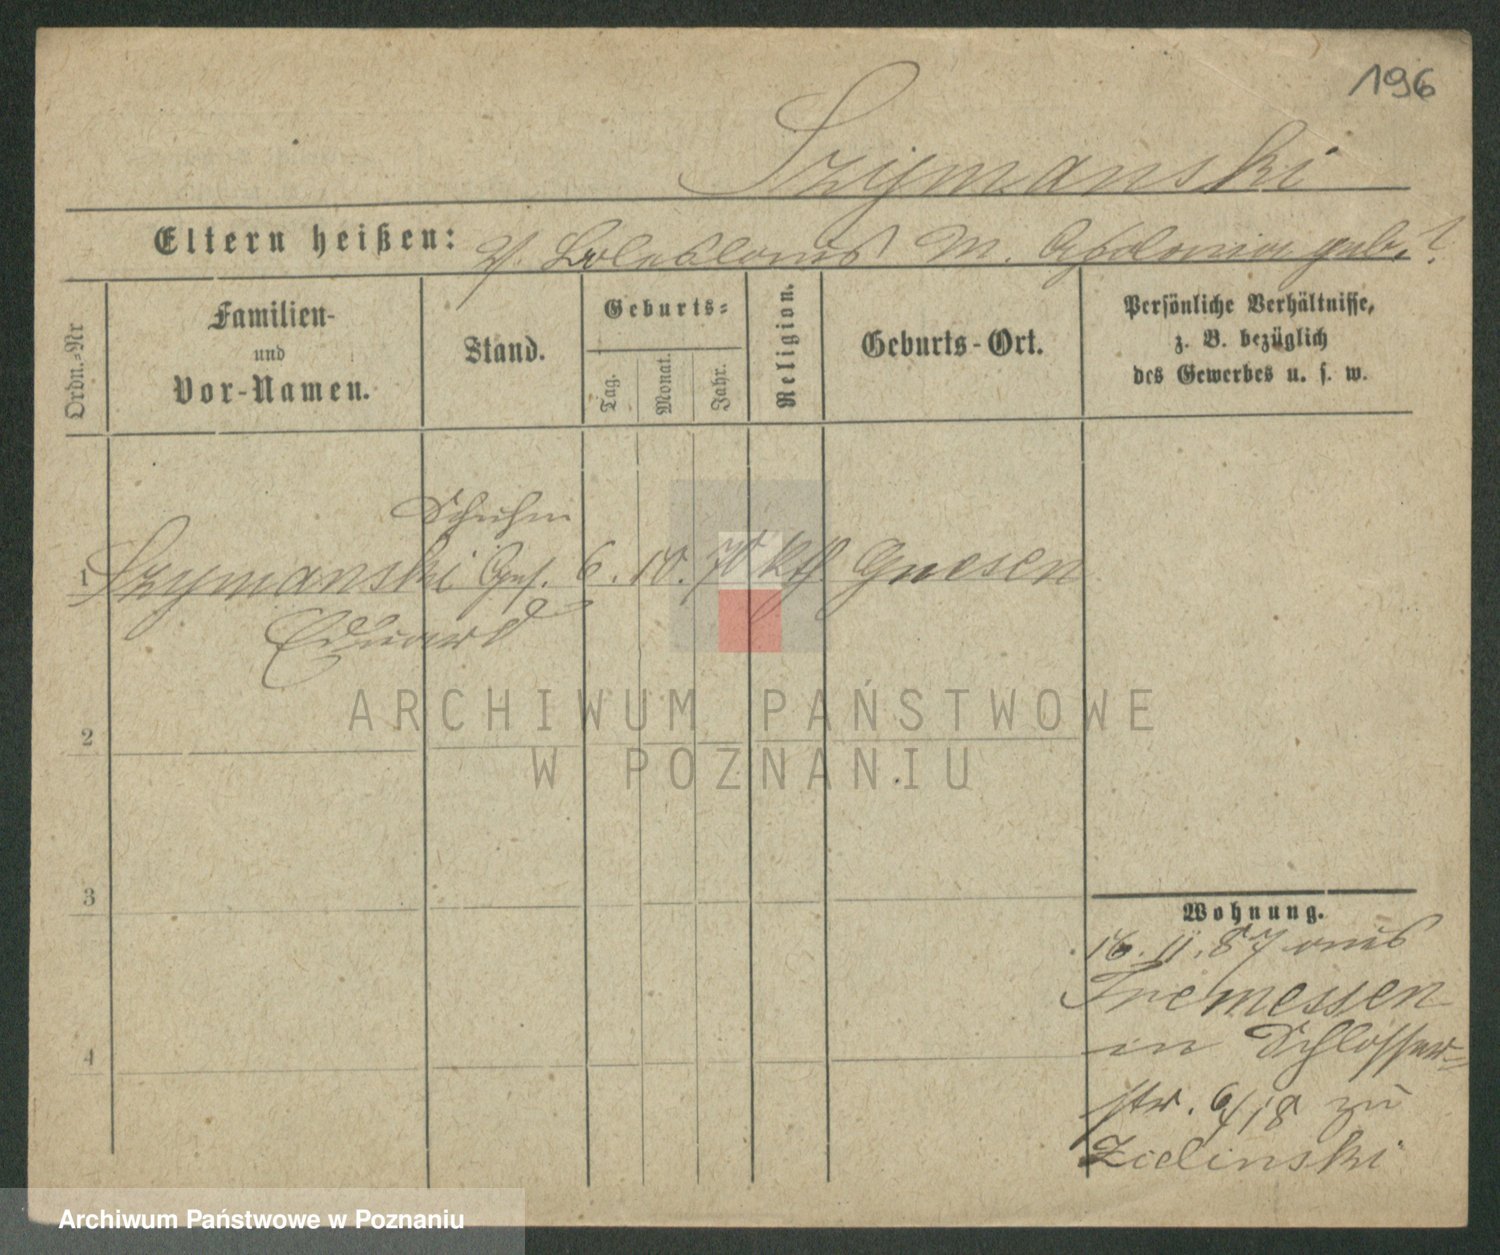 196
Szymanski
Eltern heißen: V. Boleslaus M. Apolonia geb. ?
Ordn.-Nr
Familien-
und
Vor-Namen.
Stand.
Geburts-
Tag.
Monat.
Jahr.
Religion.
Geburts-Ort.
Persönliche Verhältnisse,
z. B. bezüglich
des Gewerbes u. s. w.
Schuhm
1 Szymanski Ges. 6. 10. 70 kth Gnesen
Eduard
2
3
4
Wohnung.
16. 11. 87 aus
Tremessen
in Schlosser-
str. 6/18 zu
Zielinski
ARCHIWUM PAŃSTWOWE
W POZNANIU
Archiwum Państwowe w Poznaniu